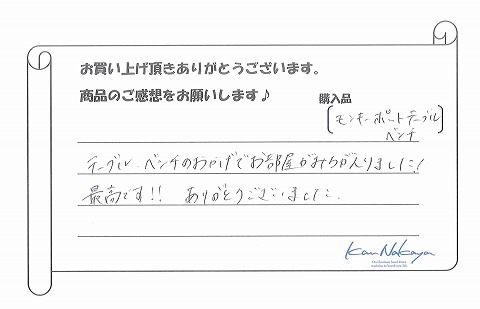 お買い上げ頂きありがとうございます。
商品のご感想をお願いします♪
購入品
モンキーポートテーブル
ベンチ
テーブル、ベンチのおかげでお部屋がみちがえりました!
最高です!! ありがとうございました.
KanNakaya